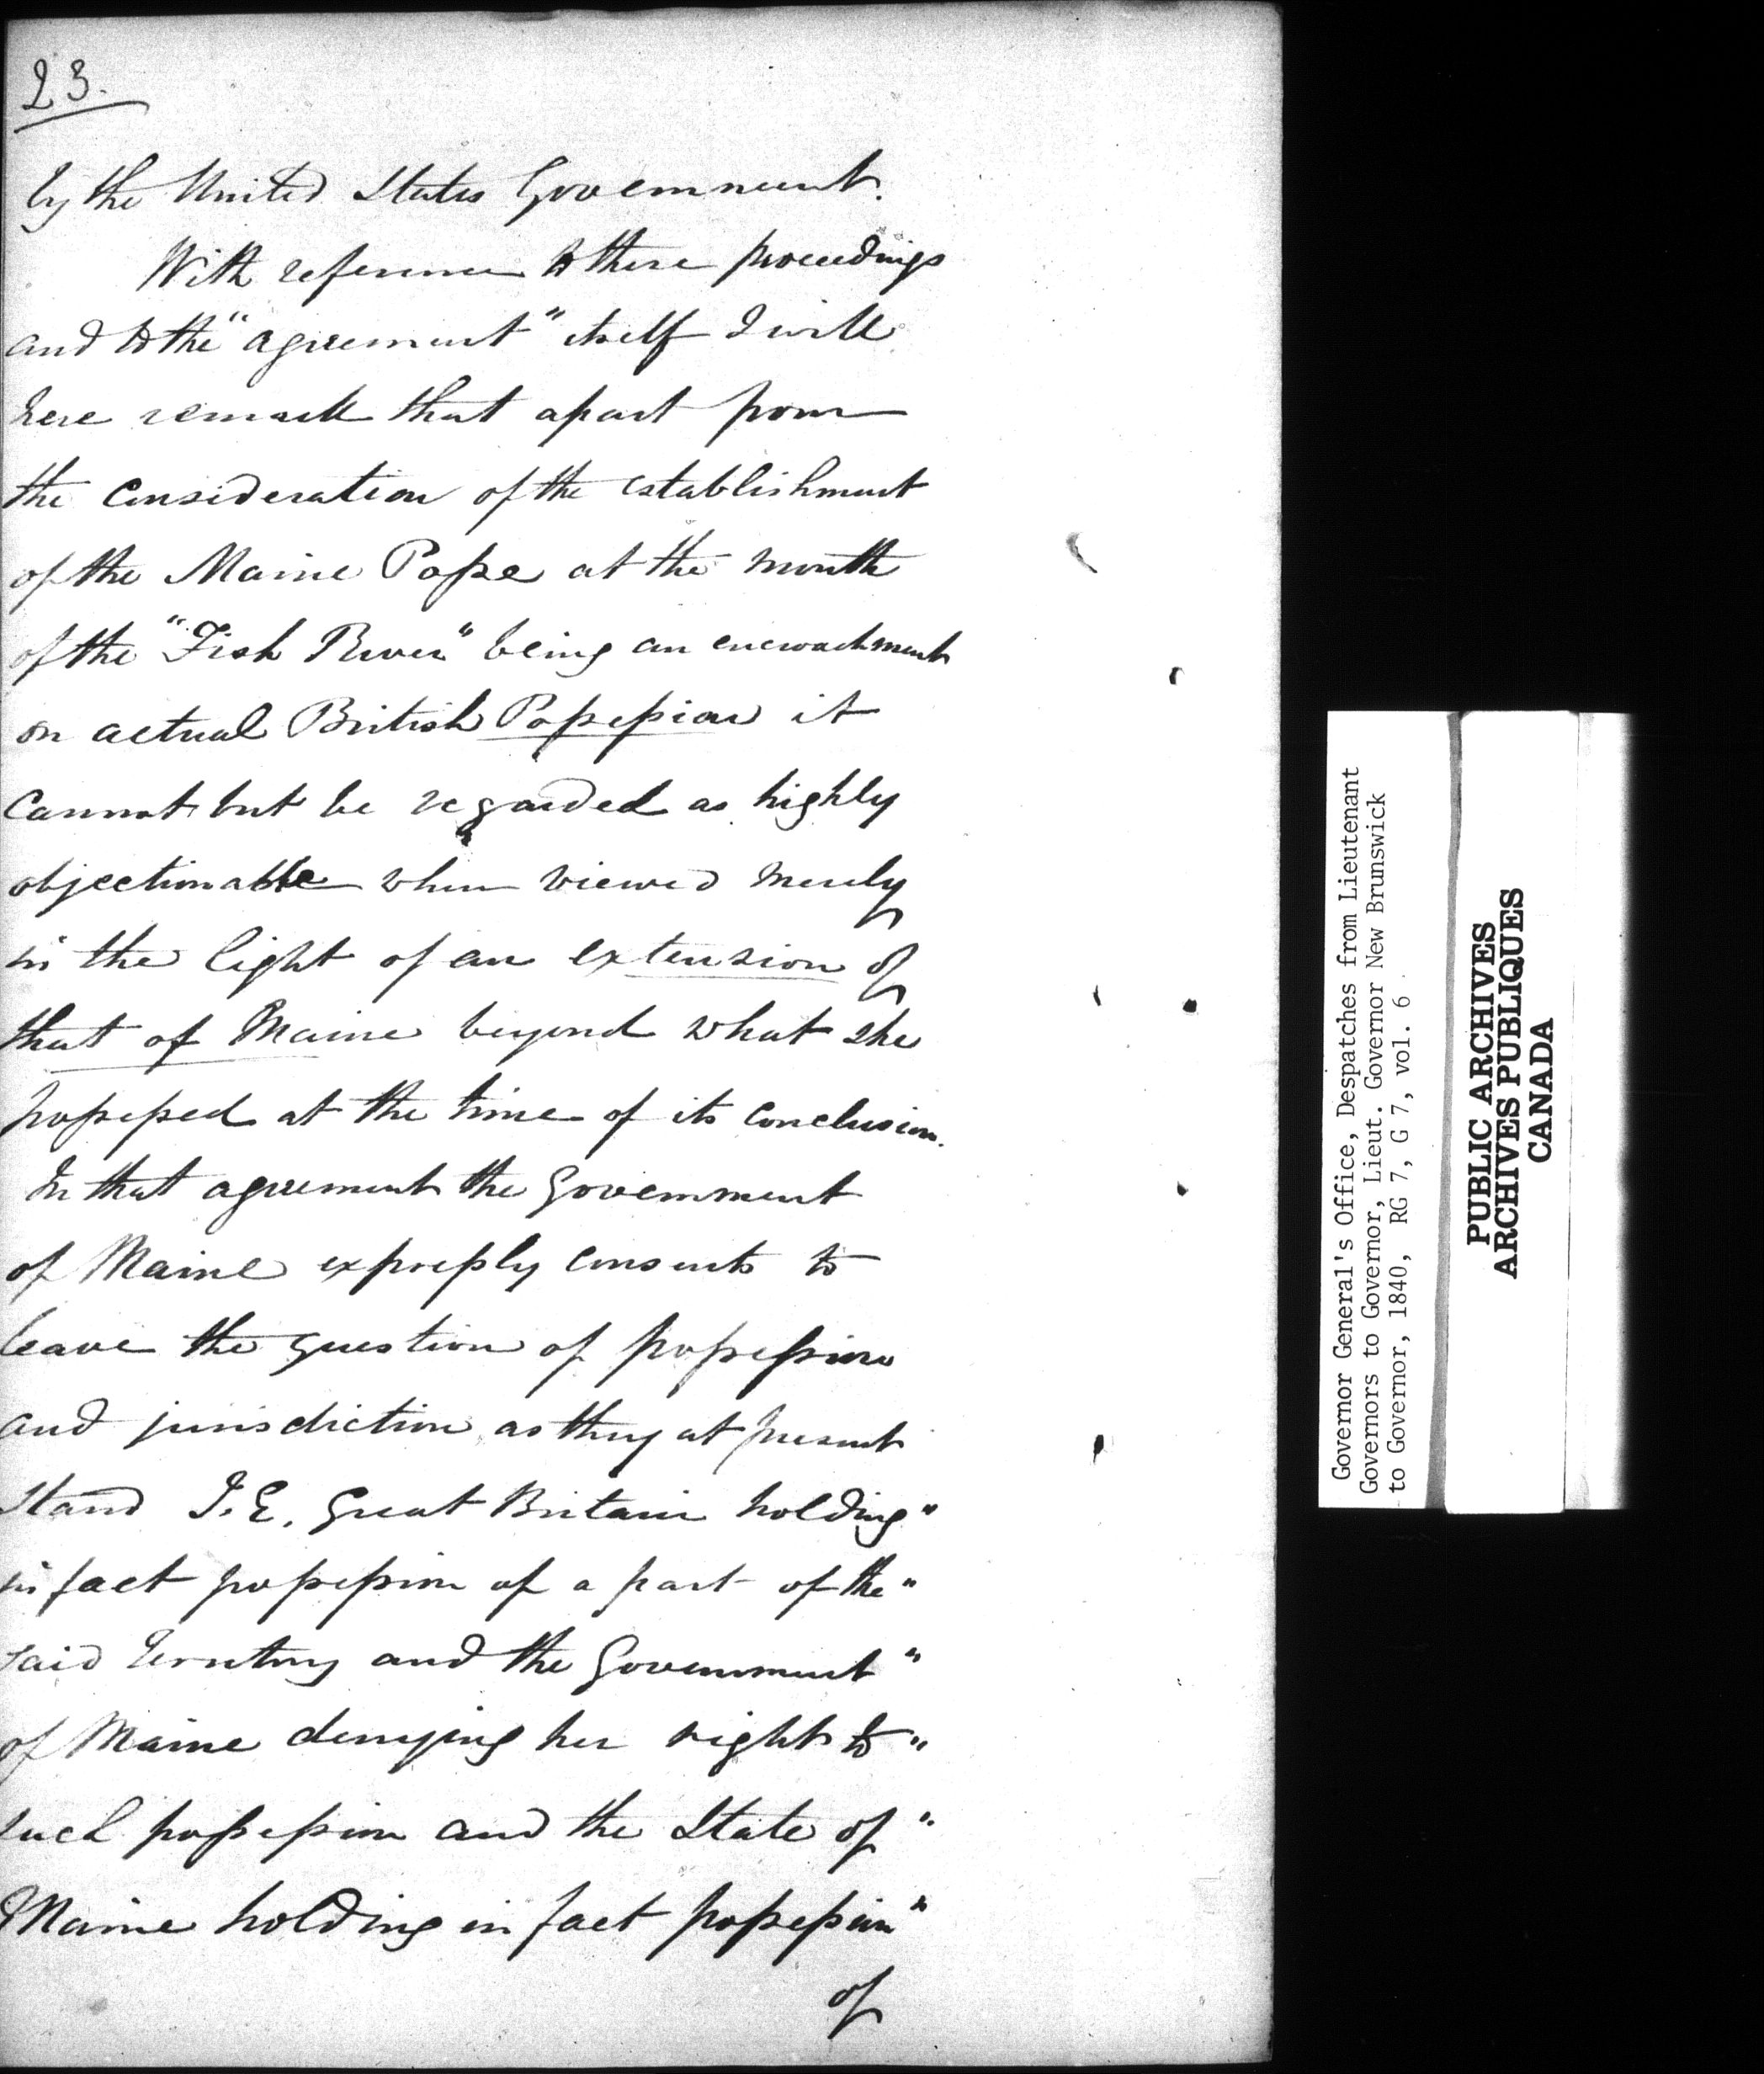 23.
by the United States Government.
With reference to these proceedings
and to the "agreement" itself I will
here remark that apart from
the consideration of the establishment
of the Maine Posse at the mouth
of the "Fish River" being an encroachment
on actual British Possession it
cannot but be regarded as highly
objectionable when viewed merely
in the light of an extension of
that of Maine beyond what she
possessed at the time of its conclusion.
In that agreement the Government
of Maine expressly consents to
leave the question of possession
and jurisdiction as they at present
stand I.E. Great Britain holding"
in fact possession of a part of the"
said Territory and the Government"
of Maine denying her right to"
such possession and the State of"
Maine holding in fact possession"
of
Governor General's Office, Despatches from Lieutenant
Governors to Governor, Lieut. Governor New Brunswick
to Governor, 1840, RG 7, G 7, vol. 6
PUBLIC ARCHIVES
ARCHIVES PUBLIQUES
CANADA